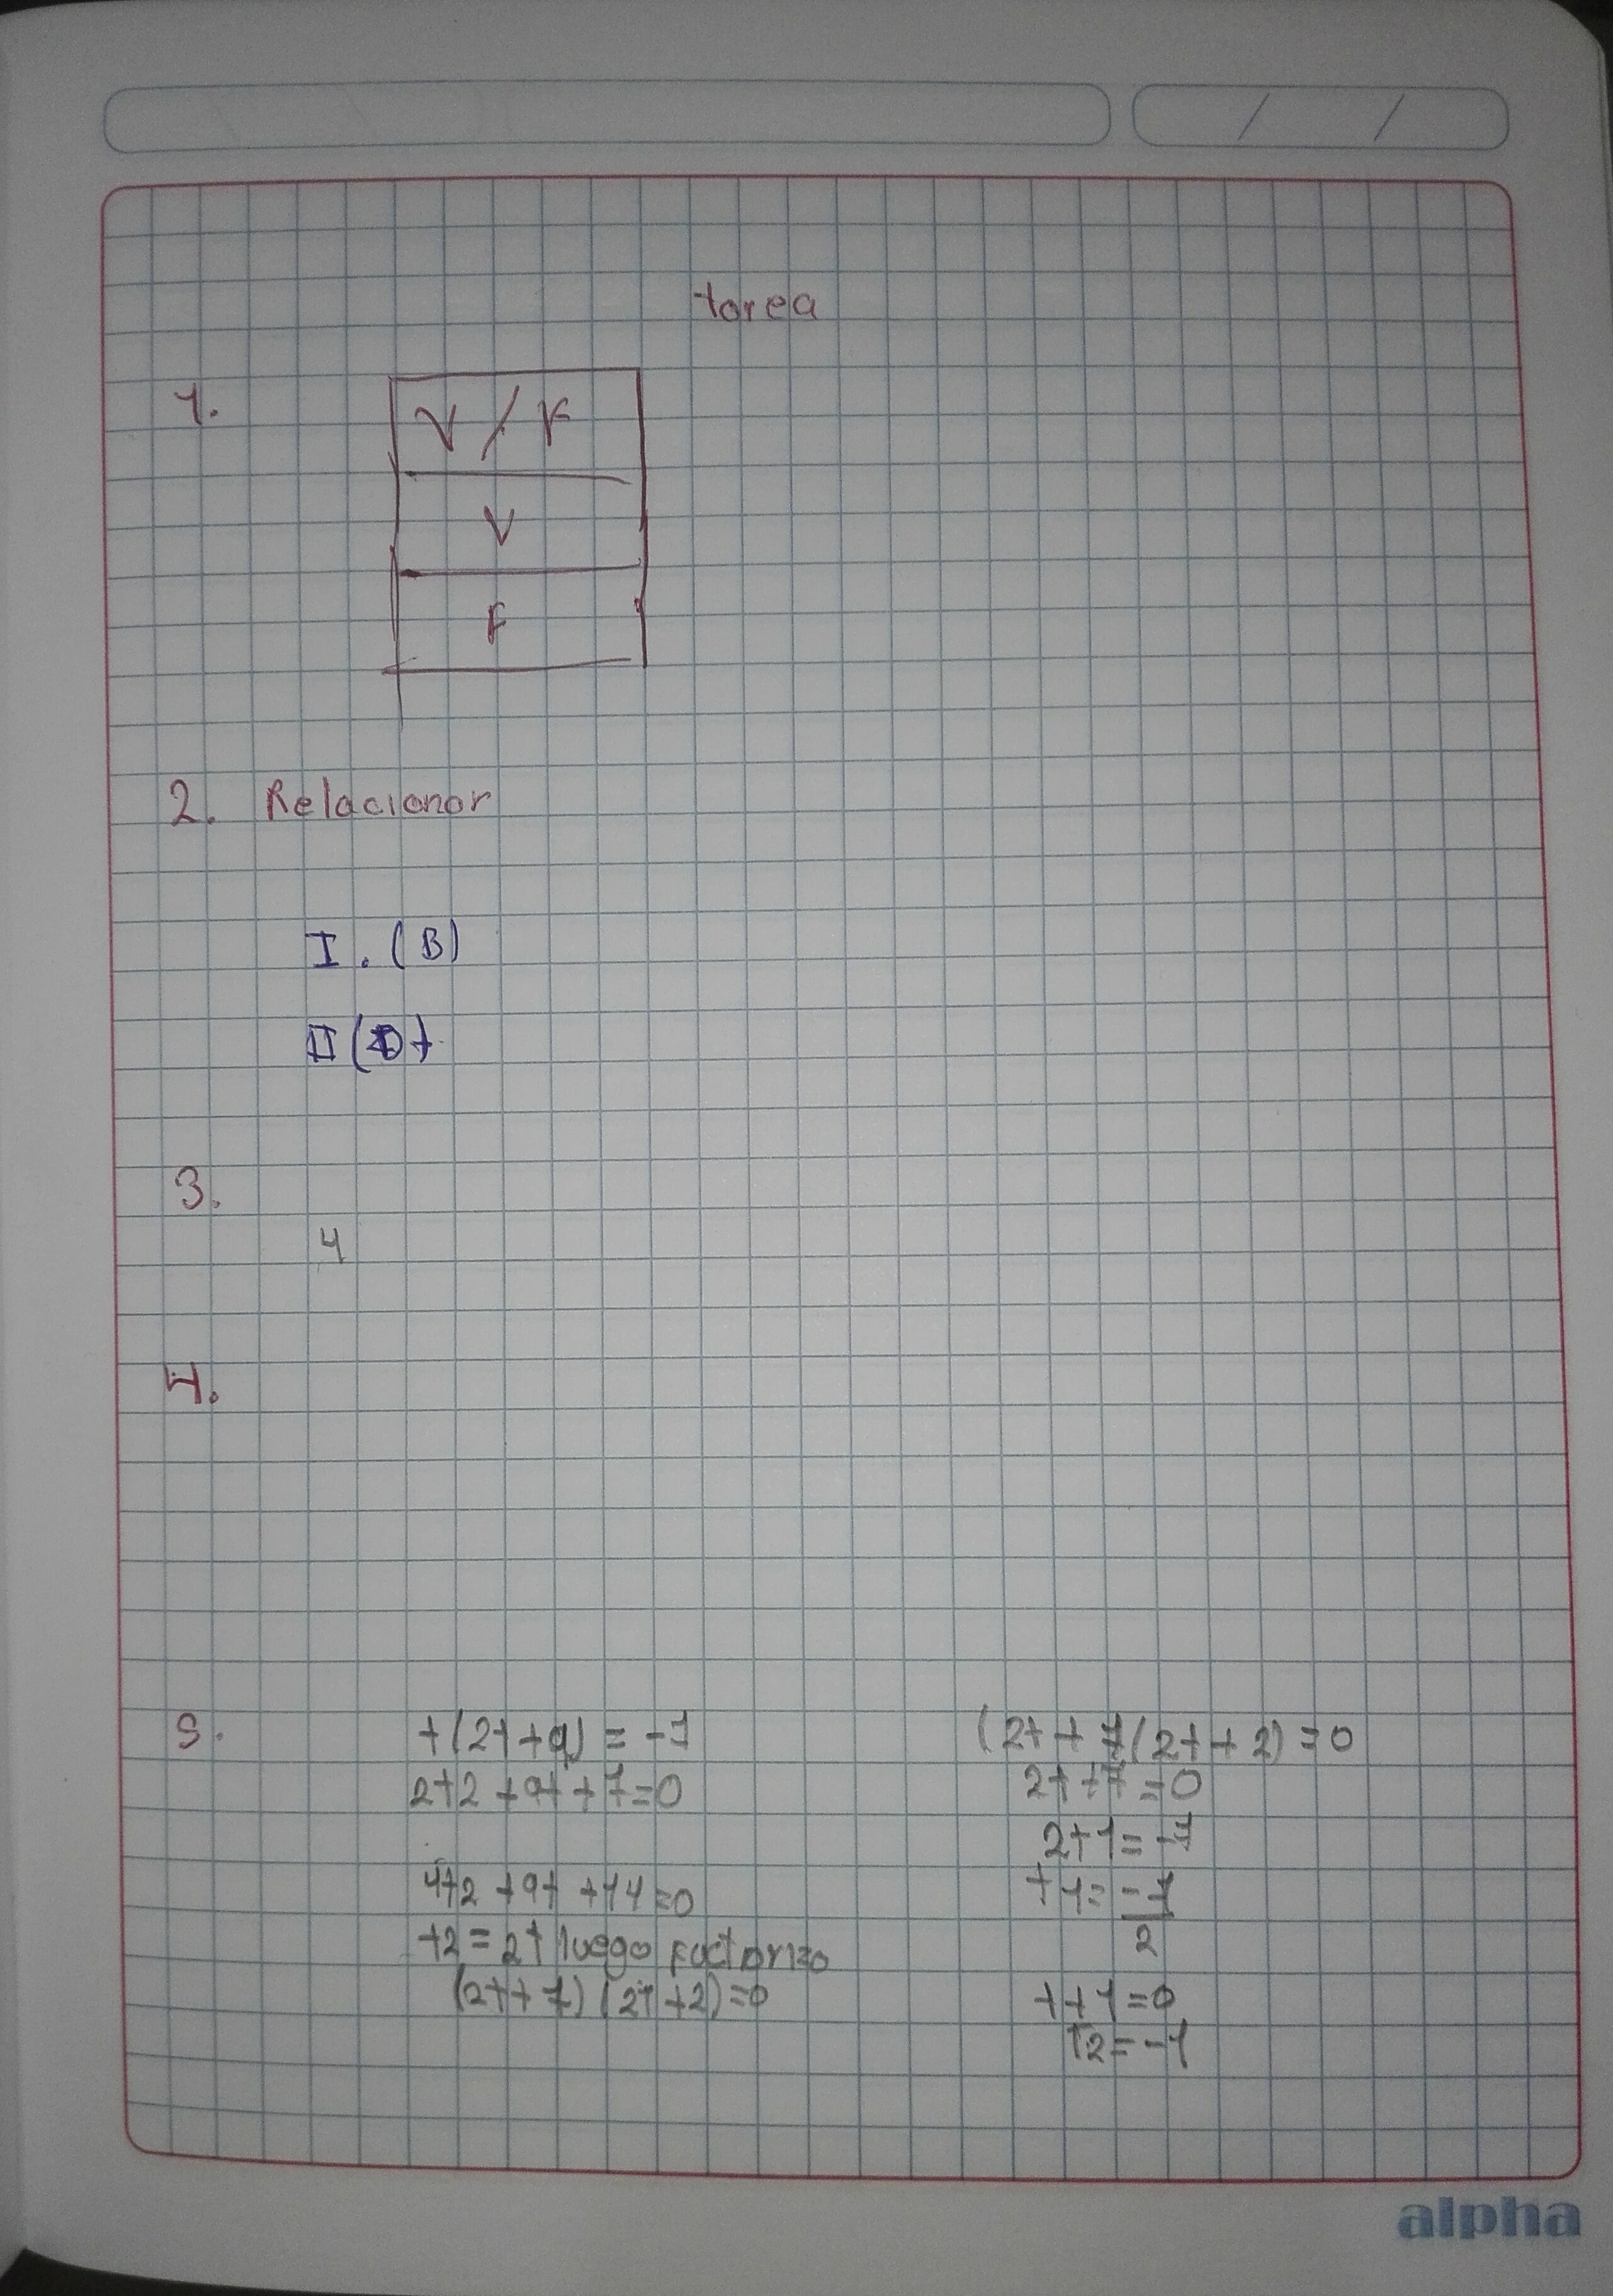 tarea
1.
V / F
V
F
2. Relacionar
I. (B)
II (D)
3.
4
4.
5.
t(2t+9) = -7
2t2 + 9t + 7=0
4t2 + 9t + 14=0
t2 = 2t luego factorizo
(2t+7) (2t+2)=0
(2t+7(2t+2)=0
2t+7=0
2t1=-7
t1=-7
2
t+1=0
t2=-1
alpha